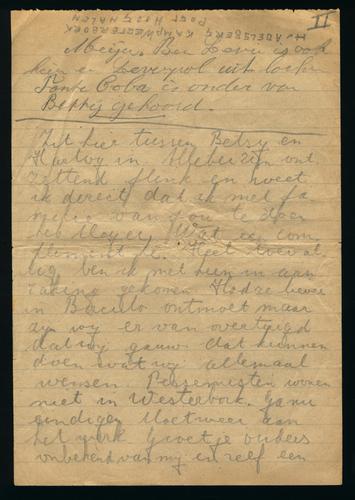 II
H. ADELSBERG KAMP WESTERBORK
POST HOOGHALEN
Meijer. Ben Levie is ook
hier en
Tante Coba is onder van
Bettij gehoord.
Zit hier tussen Betsy en
Hartog in. Allebei zijn ont
zettend flink en weet
ik direct dat ik met fa
milie van jou te doen
heb Meyer. Wat een com
pliment hè. Heel toeval
lig ben ik met hun in aan
raking gekomen
in ontmoet maar
zijn wij er van overtuigd
dat wij gauw dat kunnen
doen wat wij allemaal
wensen. Pessemisten wonen
niet in Westerbork. Ga nu
eindigen Moet weer aan
het werk. Groet je ouders
onbekend van mij en zelf een